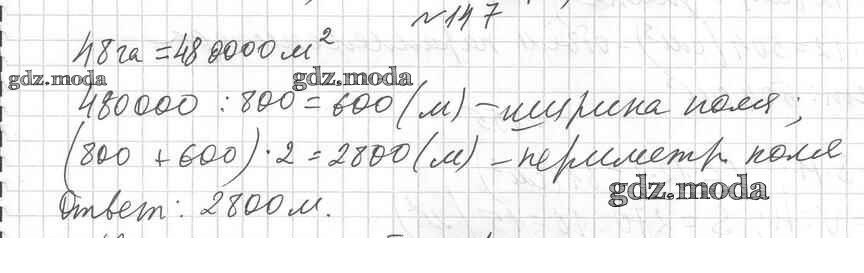 №147
48га = 480000 м²
gdz.moda gdz.moda
480000 : 800 = 600 (м) – ширина поля;
(800 + 600) · 2 = 2800 (м) – периметр поля
gdz.moda
Ответ: 2800 м.